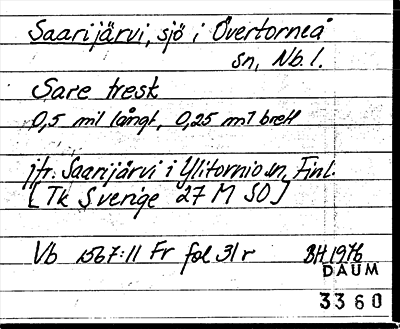 Saarijärvi, sjö i Övertorneå
sn, Nb. l.
Sare tresk
0,5 mil långt, 0,25 mil brett
jfr. Saarijärvi i Ylitornio sn, Finl.
[Tk Sverige 27 M SO]
Vb 1567:11 Fr fol 31 r BH 1976
DAUM
3360